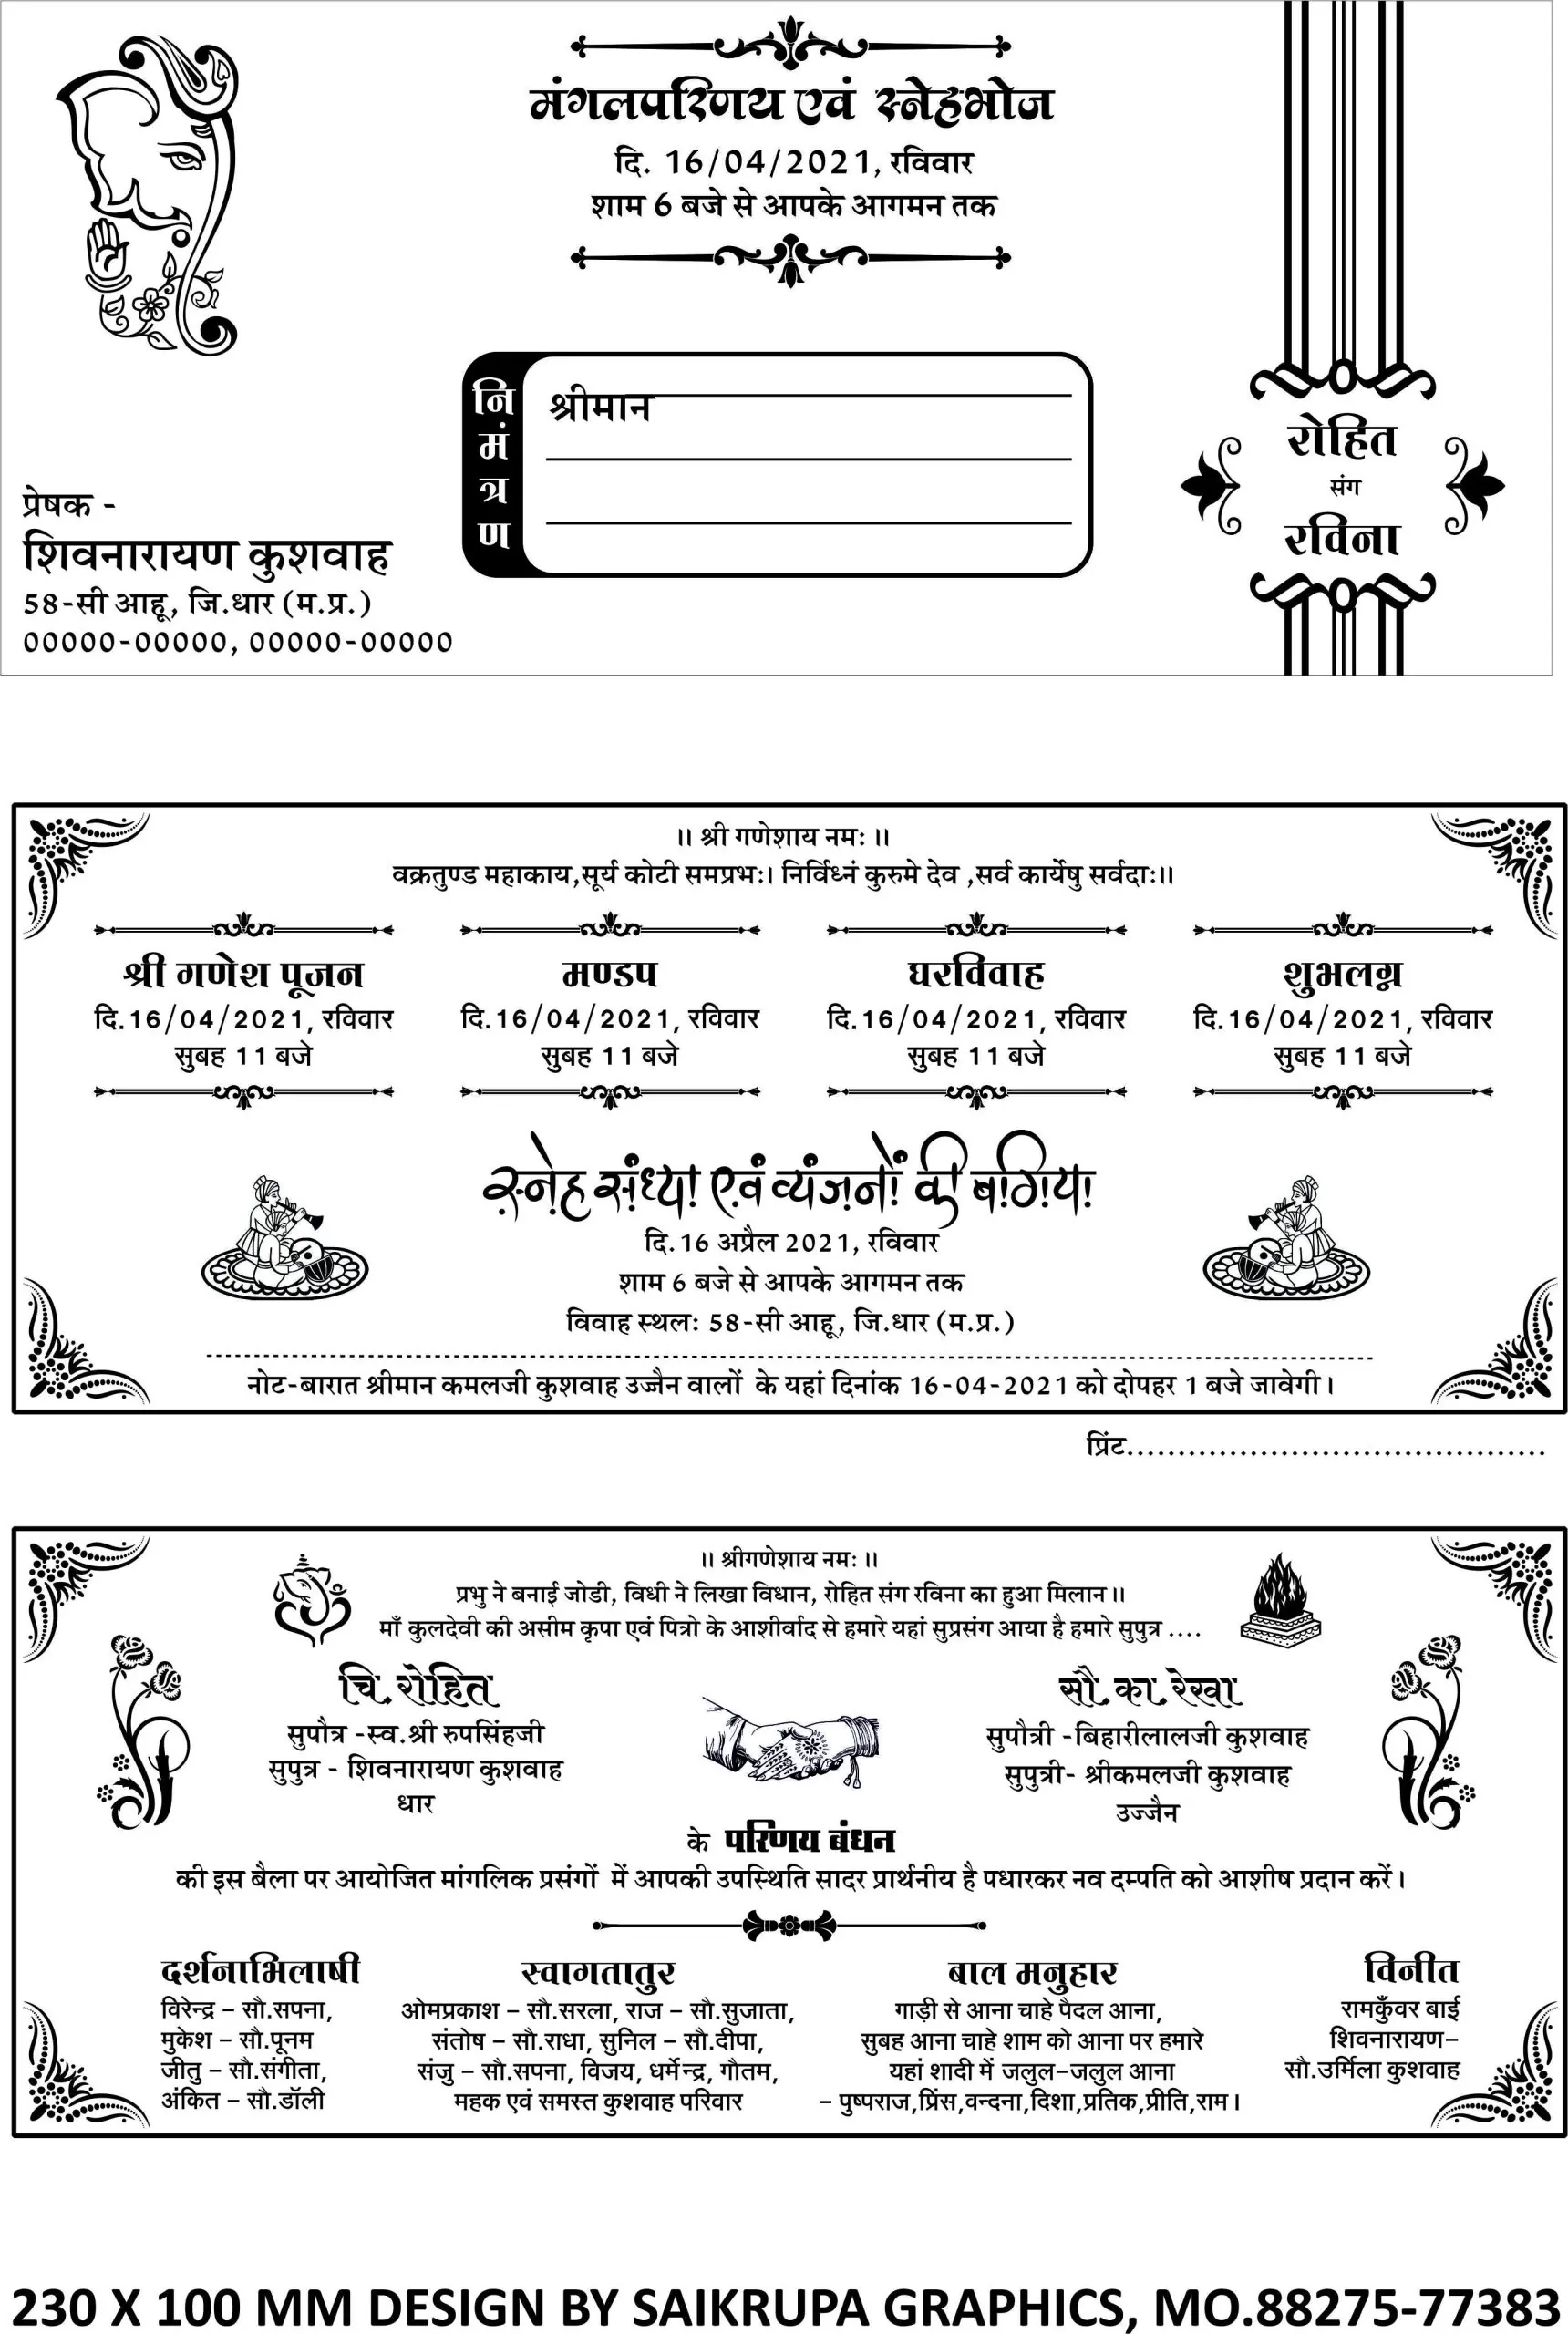 मंगलपरिणय एवं स्नेहभोज
दि. 16/04/2021, रविवार
शाम 6 बजे से आपके आगमन तक
निमंत्रण
श्रीमान
प्रेषक -
शिवनारायण कुशवाह
58-सी आहू, जि.धार (म.प्र.)
00000-00000, 00000-00000
रोहित
संग
रविना
॥ श्री गणेशाय नमः ॥
वक्रतुण्ड महाकाय,सूर्य कोटी समप्रभः। निर्विध्नं कुरुमे देव ,सर्व कार्येषु सर्वदाः॥
श्री गणेश पूजन
दि.16/04/2021, रविवार
सुबह 11 बजे
मण्डप
दि.16/04/2021, रविवार
सुबह 11 बजे
घरविवाह
दि.16/04/2021, रविवार
सुबह 11 बजे
शुभलग्न
दि.16/04/2021, रविवार
सुबह 11 बजे
स्नेह संध्या एवं व्यंजनों की बगिया
दि.16 अप्रैल 2021, रविवार
शाम 6 बजे से आपके आगमन तक
विवाह स्थलः 58-सी आहू, जि.धार (म.प्र.)
नोट-बारात श्रीमान कमलजी कुशवाह उज्जैन वालों के यहां दिनांक 16-04-2021 को दोपहर 1 बजे जावेगी।
प्रिंट.......................................
॥ श्रीगणेशाय नमः ॥
प्रभु ने बनाई जोडी, विधी ने लिखा विधान, रोहित संग रविना का हुआ मिलान॥
माँ कुलदेवी की असीम कृपा एवं पित्रो के आशीर्वाद से हमारे यहां सुप्रसंग आया है हमारे सुपुत्र ....
चि.रोहित
सुपौत्र -स्व.श्री रुपसिंहजी
सुपुत्र - शिवनारायण कुशवाह
धार
सौ.का.रेखा
सुपौत्री -बिहारीलालजी कुशवाह
सुपुत्री- श्रीकमलजी कुशवाह
उज्जैन
के परिणय बंधन
की इस बैला पर आयोजित मांगलिक प्रसंगों में आपकी उपस्थिति सादर प्रार्थनीय है पधारकर नव दम्पति को आशीष प्रदान करें।
दर्शनाभिलाषी
विरेन्द्र – सौ.सपना,
मुकेश – सौ.पूनम
जीतु – सौ.संगीता,
अंकित – सौ.डॉली
स्वागतातुर
ओमप्रकाश – सौ.सरला, राज – सौ.सुजाता,
संतोष – सौ.राधा, सुनिल – सौ.दीपा,
संजु – सौ.सपना, विजय, धर्मेन्द्र, गौतम,
महक एवं समस्त कुशवाह परिवार
बाल मनुहार
गाड़ी से आना चाहे पैदल आना,
सुबह आना चाहे शाम को आना पर हमारे
यहां शादी में जलुल–जलुल आना
– पुष्पराज,प्रिंस,वन्दना,दिशा,प्रतिक,प्रीति,राम।
विनीत
रामकुँवर बाई
शिवनारायण–
सौ.उर्मिला कुशवाह
230 X 100 MM DESIGN BY SAIKRUPA GRAPHICS, MO.88275-77383